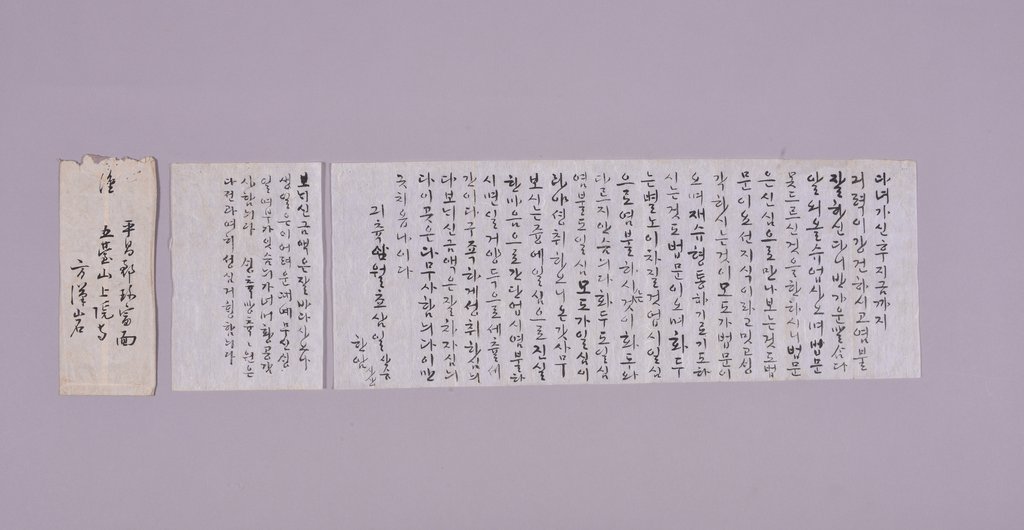 다녀가신후지금까지
긔력이강건하시고염불
잘하신다니반가운말삼다
알외올슈업사오며법문
못드르신것을한하시니법문
은신심으로만나보는것도법
문이오선지식이라고밋고싱
각하는것이모도가법문이
으며재슈형통하기르기도하
시는것도법문이오며화두
는별노이차질것업시일심
으로염불하시것이화두와
다르지안슴늬다화두도일심
염불도일심모도가일심이
라야셩취하오니온갓사무
보시는중에일심으로진실
한마음으로간단업시염불하
시면일거양득으로세츌세
간이다구죡하게셩취하심늬
다보늬신금액은잘하자심늬
다이곳은다무사함늬다이만
긋치옴나이다
긔츅삼월쵸삼일산중
한암
보늬신금액은잘바다사오나
생일은이어려운때예무신싱
일여부가잇슴늬가너머황공감
사함늬다 원은
성심거행함늬다
平昌郡珍富面
五臺山上院寺
方漢岩